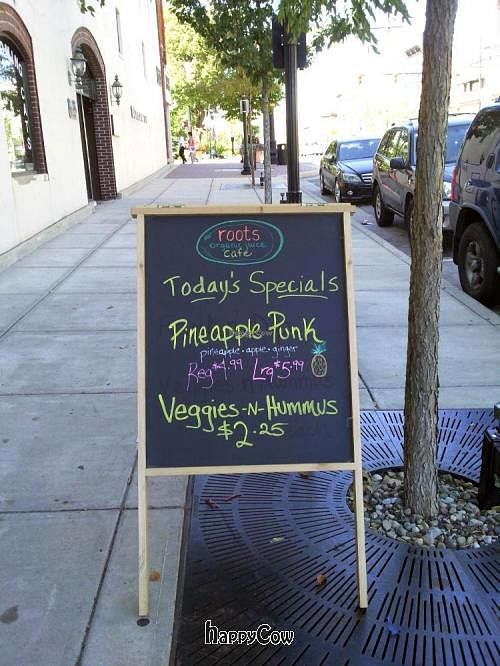 roots
organic juice
café
Today's Specials
Pineapple Punk
pineapple • apple • ginger
Reg $4.99 Lrg $5.99
Veggies-N-Hummus
$2.25
HappyCow